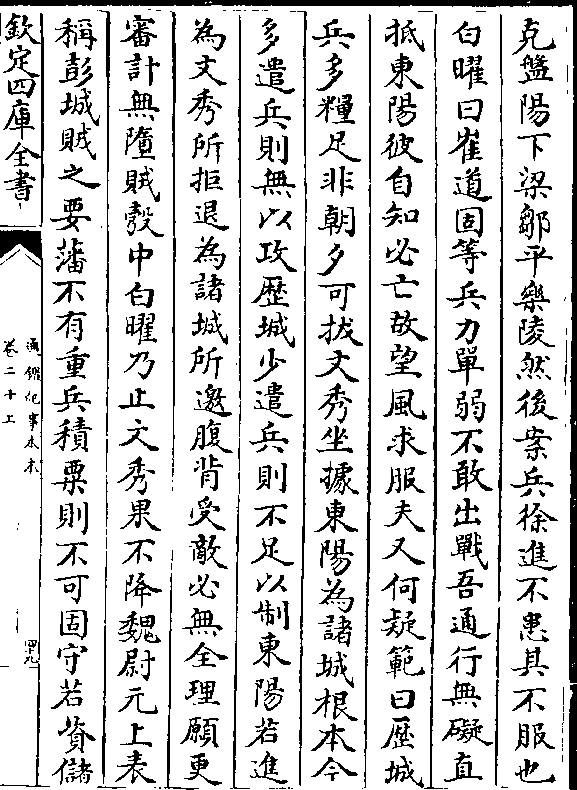 克盤陽下梁鄒平樂陵然後案兵徐進不患其不服也
白曜曰崔道固等兵力單弱不敢出戰吾通行無礙直
抵東陽彼自知必亡故望風求服夫又何疑範曰歷城
兵多糧足非朝夕可拔文秀坐據東陽為諸城根本今
多遣兵則無以攻歷城少遣兵則不足以制東陽若進
為文秀所拒退為諸城所邀腹背受敵必無全理願更
審計無墮賊彀中白曜乃止文秀果不降魏尉元上表
稱彭城賊之要藩不有重兵積粟則不可固守若資儲
欽定四庫全書
通鑑紀事本末
卷二十上
四九